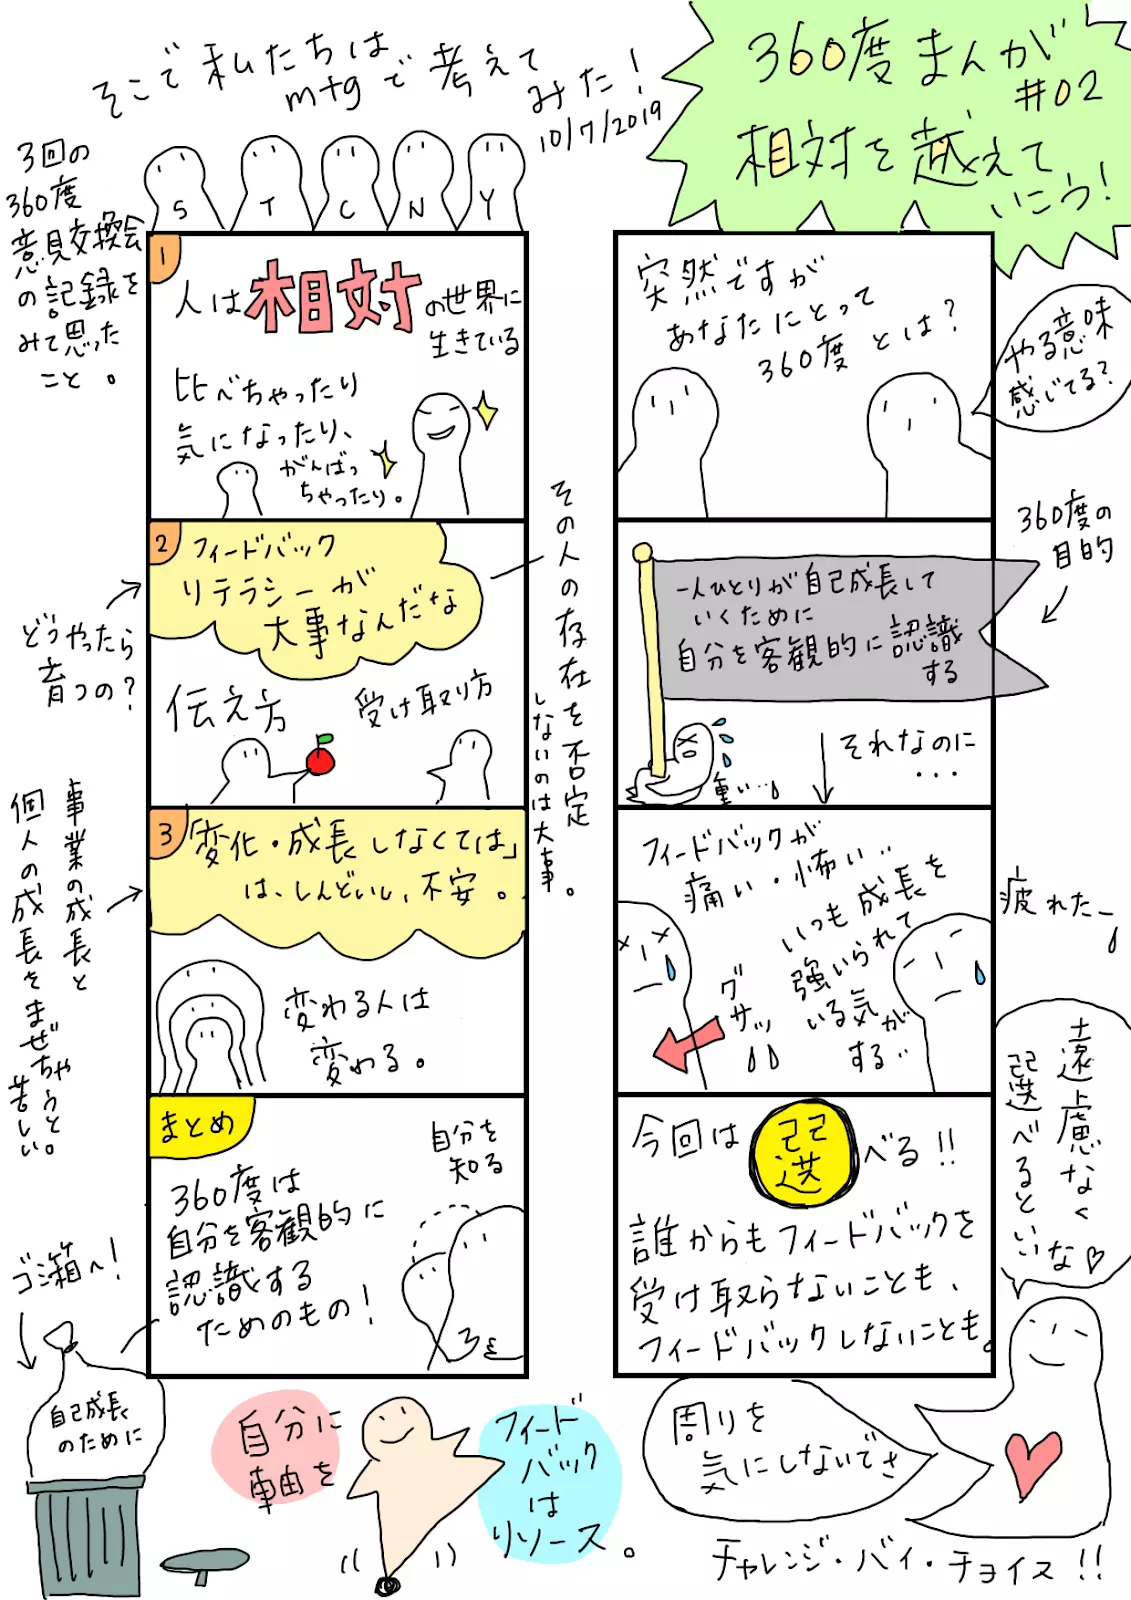 360度まんが
#02
相対を越えて
いこう！
突然ですが
あなたにとって
360度とは？
やる意味
感じてる？
360度の
目的
一人ひとりが自己成長して
いくために
自分を客観的に認識
する
重い…
それなのに
・・・
フィードバックが
痛い・怖い..
いつも成長を
強いられて
いる気が
する..
グサッ
疲れたー
今回は選べる!!
誰からもフィードバックを
受け取らないことも、
フィードバックしないことも。
遠慮なく
選べるといいな♡
周りを
気にしないでさ
チャレンジ・バイ・チョイス!!
そこで私たちは
mtgで考えて
みた！
10/7/2019
S T C N Y
3回の
360度
意見交換会
の記録を
みて思った
こと。
1
人は相対の世界に
生きている
比べちゃったり
気になったり、
がんばっ
ちゃったり。
2
フィードバック
リテラシーが
大事なんだな
伝え方
受け取り方
どうやったら
育つの？
その人の存在を否定
しないのは大事。
3
「変化・成長しなくては」
は、しんどいし、不安。
変わる人は
変わる。
事業の成長と
個人の成長をまぜちゃうと。
苦しい。
まとめ
360度は
自分を客観的に
認識する
ためのもの！
自分を
知る
ゴミ箱へ！
自己成長
のために
自分に
軸を
フィード
バック
は
リソース。